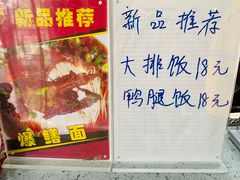 新品推荐
爆鳝面
新品推荐
大排饭18元
鸭腿饭18元